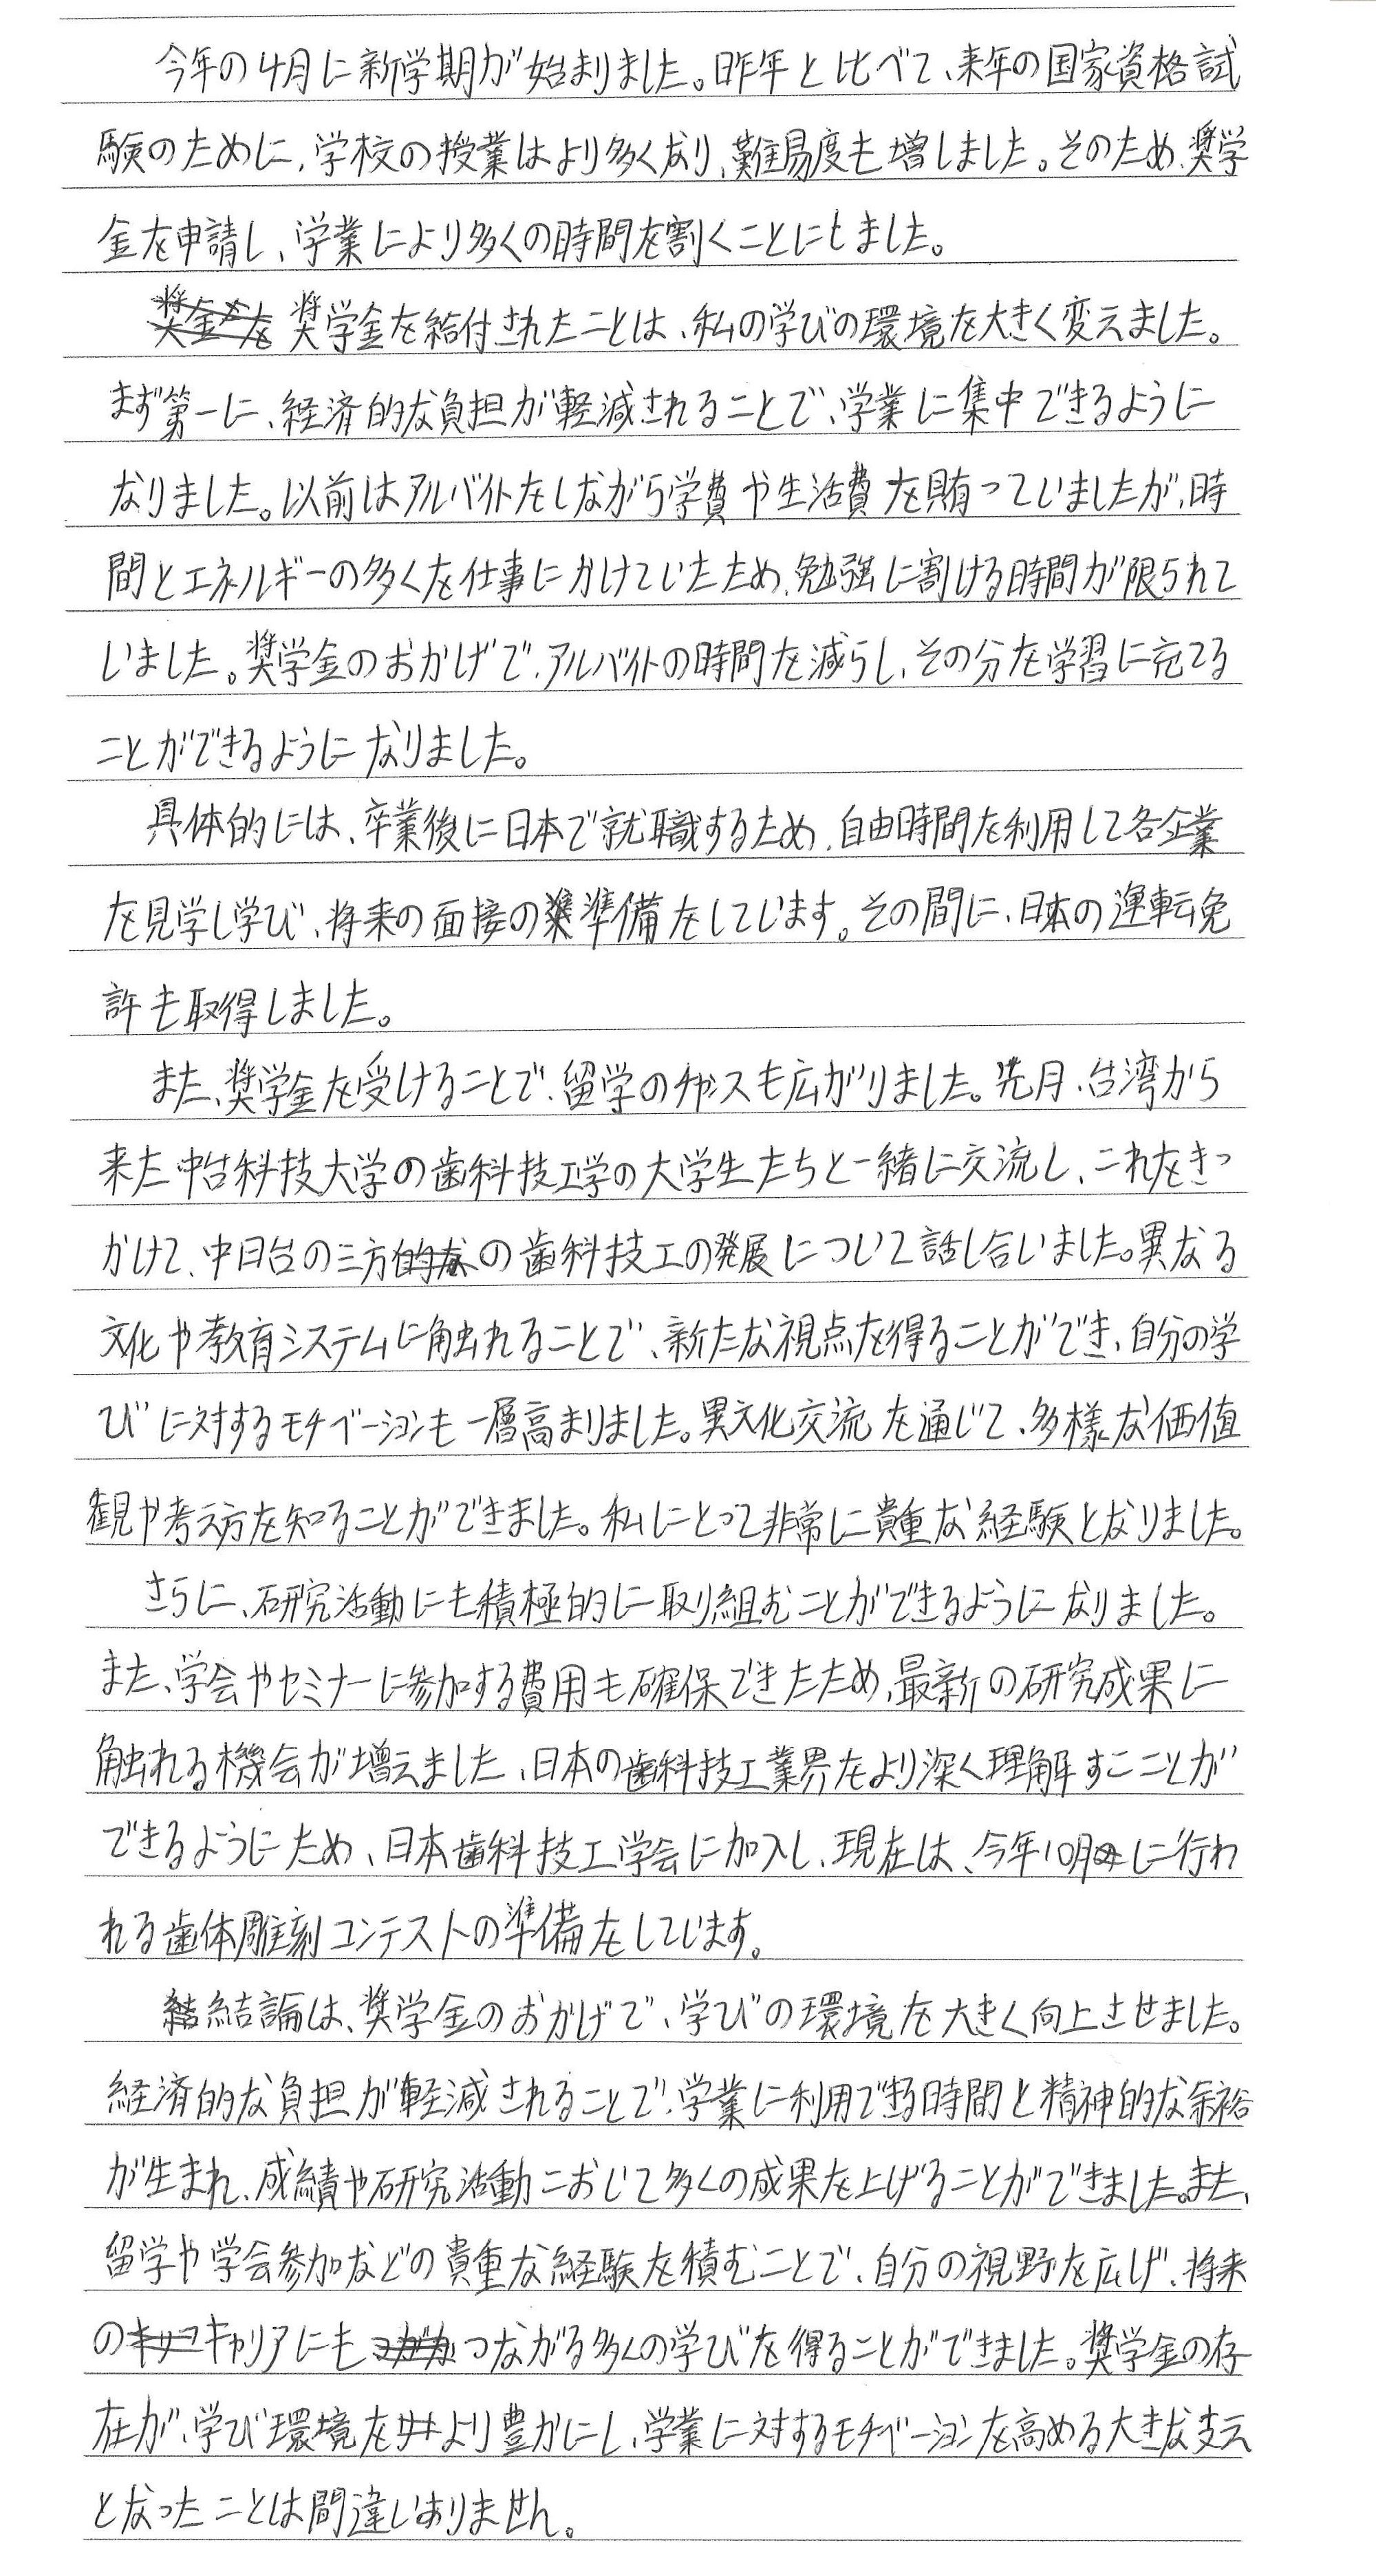 今年の4月に新学期が始まりました。昨年と比べて、来年の国家資格試
験のために、学校の授業はより多くなり、難易度も増しました。そのため、奨学
金を申請し、学業により多くの時間を割くことにしました。
奨学金を給付されたことは、私の学びの環境を大きく変えました。
まず第一に、経済的な負担が軽減されることで、学業に集中できるように
なりました。以前はアルバイトをしながら学費や生活費を賄っていましたが、時
間とエネルギーの多くを仕事にかけていたため、勉強に割ける時間が限られて
いました。奨学金のおかげで、アルバイトの時間を減らし、その分を学習に充てる
ことができるようになりました。
具体的には、卒業後に日本で就職するため、自由時間を利用して各企業
を見学し学び、将来の面接の準備をしています。その間に、日本の運転免
許も取得しました。
また、奨学金を受けることで、留学のチャンスも広がりました。先月、台湾から
来た中台科技大学の歯科技工学の大学生たちと一緒に交流し、これをきっ
かけて、中日台の三方の歯科技工の発展について話し合いました。異なる
文化や教育システムに触れることで、新たな視点を得ることができ、自分の学
びに対するモチベーションも一層高まりました。異文化交流を通じて、多様な価値
観や考え方を知ることができました。私にとって非常に貴重な経験となりました。
さらに、研究活動にも積極的に取り組むことができるようになりました。
また、学会やセミナーに参加する費用も確保できたため、最新の研究成果に
触れる機会が増えました、日本の歯科技工業界をより深く理解すことが
できるようにため、日本歯科技工学会に加入し、現在は、今年10月に行わ
れる歯体彫刻コンテストの準備をしています。
結論は、奨学金のおかげで、学びの環境を大きく向上させました。
経済的な負担が軽減されることで、学業に利用できる時間と精神的な余裕
が生まれ、成績や研究活動において多くの成果を上げることができました。また、
留学や学会参加などの貴重な経験を積むことで、自分の視野を広げ、将来
のキャリアにもつながる多くの学びを得ることができました。奨学金の存
在が、学び環境をより豊かにし、学業に対するモチベーションを高める大きな支え
となったことは間違いありません。